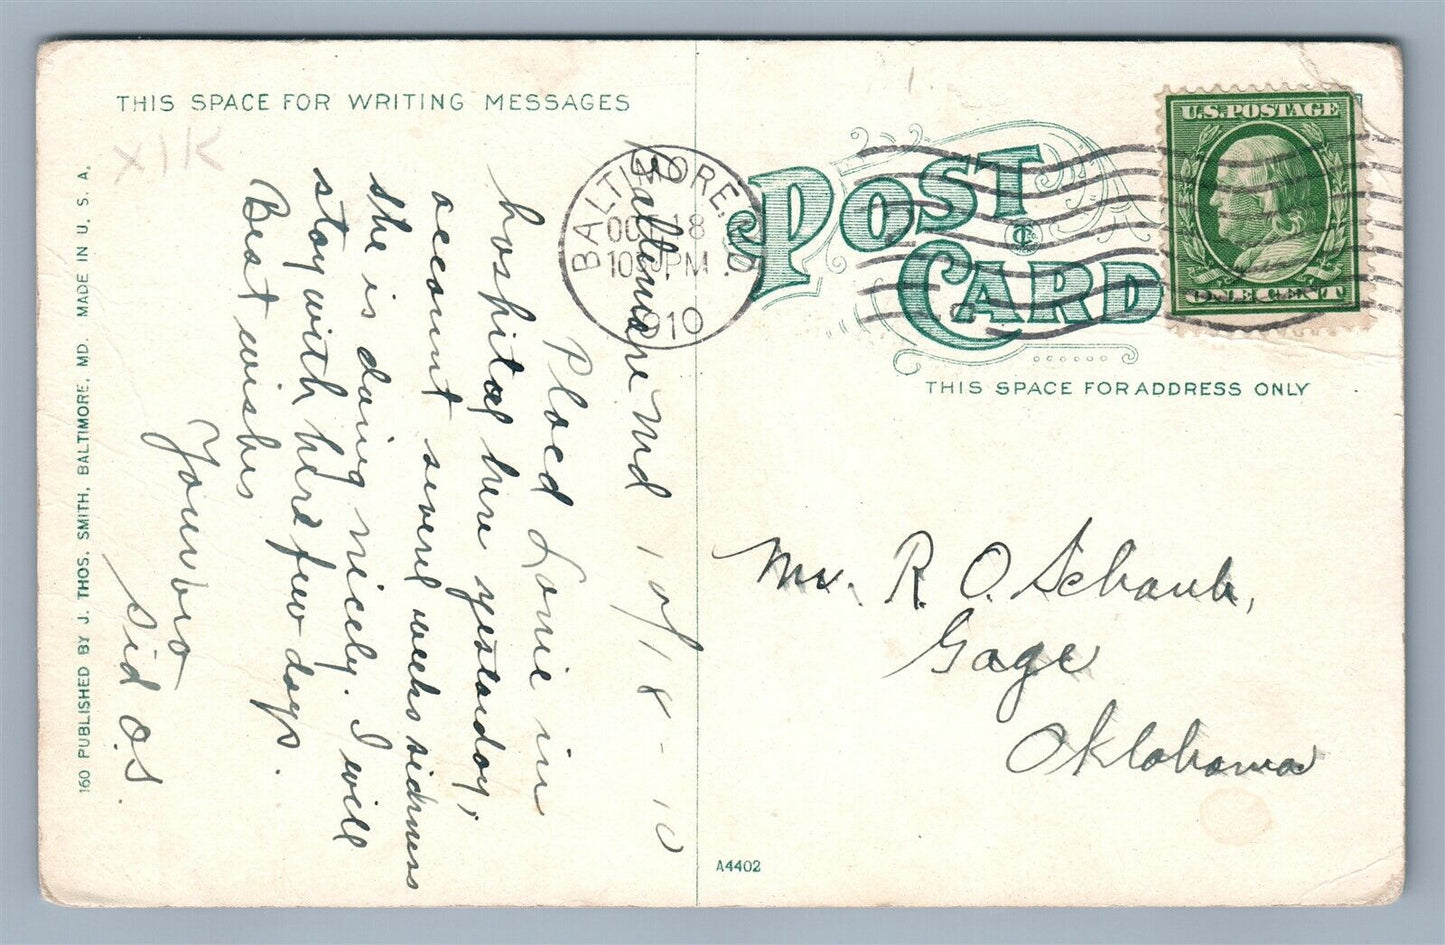 THIS SPACE FOR WRITING MESSAGES
X1K
BALTIMORE, MD
OCT 18
10 PM
1910
POST CARD
U.S. POSTAGE
ONE CENT
THIS SPACE FOR ADDRESS ONLY
Baltimore Md 10/18-10
Placed Lonie in
hospital here yesterday;
account several weeks sickness
she is doing nicely. I will
stay with here few days.
Best wishes
Yours
Sid O.S.
Mr. R. O. Schaub,
Gage
Oklahoma
A4402
160 PUBLISHED BY J. THOS. SMITH, BALTIMORE, MD. MADE IN U. S. A.